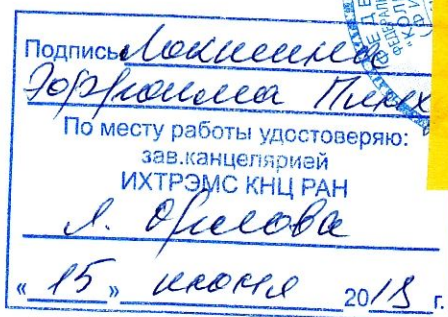 Подпись Локшина
Эффроима Пинх
По месту работы удостоверяю:
зав.канцелярией
ИХТРЭМС КНЦ РАН
Л. Орлова
«15» июня 2018 г.